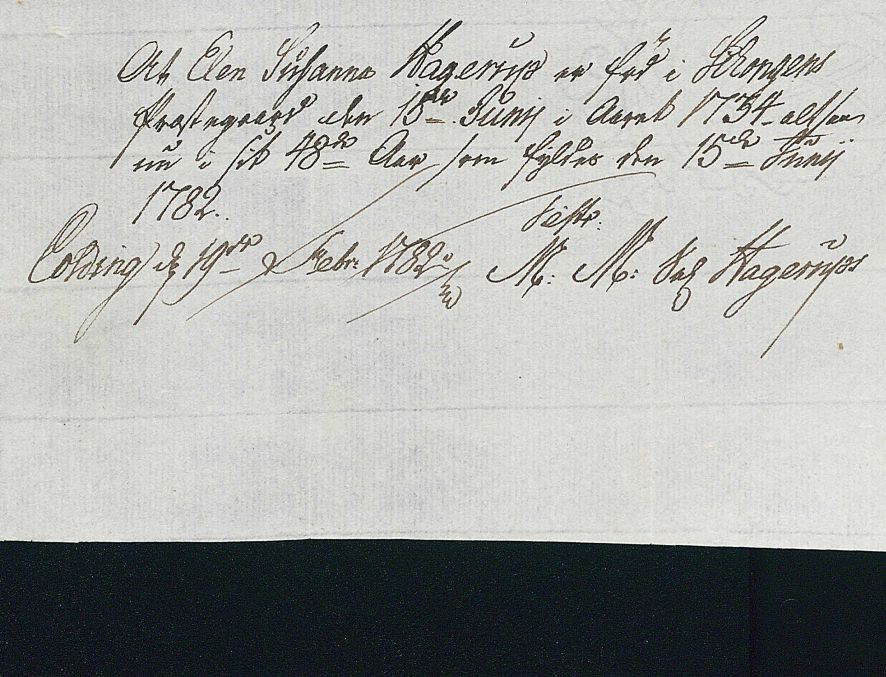 At Elen Susanna Hagerup er fød i
Præstegaard den 18de Junij i Aaret 1734 altsaa
nu i sit 48de Aar som fyldes den 15de Junij
1782.
Testr:
Colding d. 19de Febr: 1782. M: M: Sal Hagerups